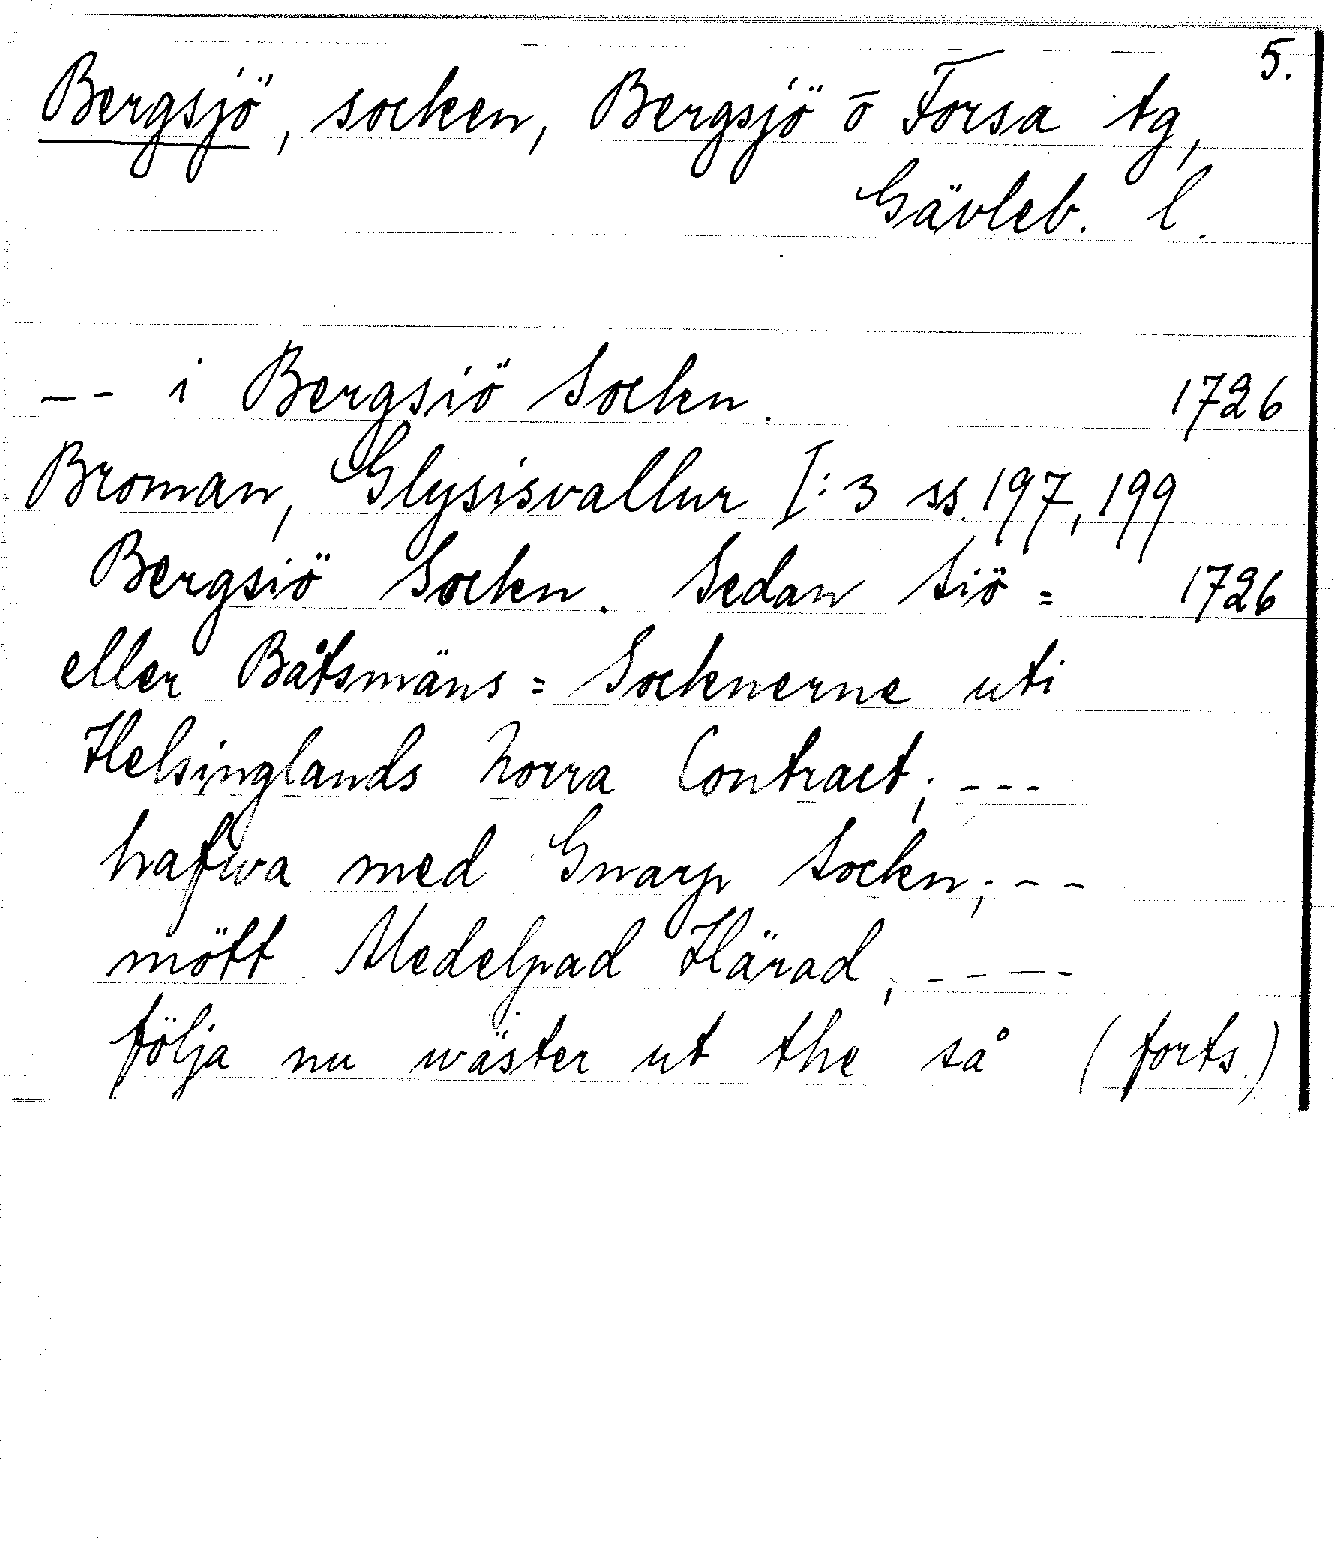 5.
Bergsjö, socken, Bergsjö o Forsa tg,
Gävleb. l.
-- i Bergsiö Sockn. 1726
Broman, Glysisvallur I:3 ss. 197, 199
Bergsiö Sockn. Sedan Siö = 1726
eller Båtsmäns = Socknerne uti
Helsinglands Norra Contract; ---
hafwa med Gnarp Sockn; --
mött Medelpad Härad, ----
följa nu wäster ut the så (forts.)